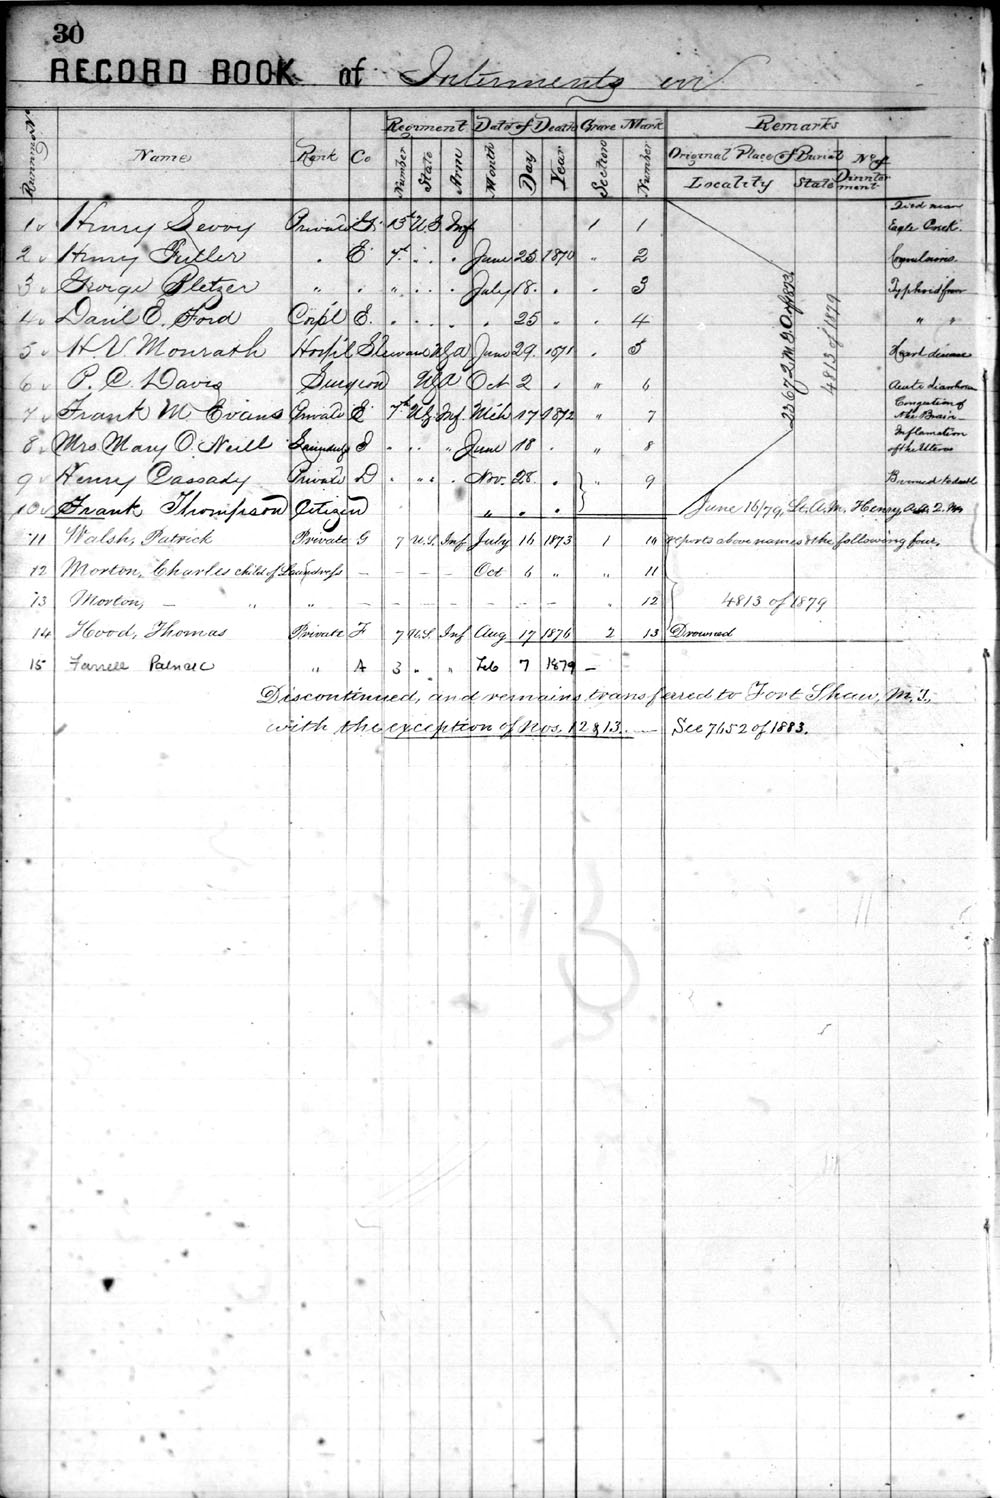 30
RECORD BOOK of Interments in
Regiment Date of Death Grave Mark Remarks
Name Rank Co Number State Arm Month Day Year Section Number Original Place of Burial No of
Locality State Disinterment
1 Henry Private G. 13th U.S. Inf 1 1 Died near Eagle Creek.
2 Henry Fuller " E. 7th " " June 25 1870 " 2
3 George Pletzer " " " " " July 18. " " 3 Typhoid fever
4 Danl E. Ford Corpl E. " " " " 25 " " 4 " "
5 H. V. Hospl Steward USA June 29. 1871 " 5 Heart disease
6 P. C. Davis Surgeon USA Oct 2 " " 6 Acute diarrhoea
7 Frank M Evans Private E. 7th U.S. Inf. Mch 17 1872 " 7 Congestion of the Brain
8 Mrs Mary O. Neill Laundress I " " " June 18 " " 8 Inflamation of the Uterus
9 Henry Cassady Private D " " " Nov. 28. " " 9 Burned to death
10 Frank Thompson Citizen " " "
23672 M.G.O. of 1873
4813 of 1879
June 16/79, Lt. A.M. Henry, A.A.Q.M.
11 Walsh, Patrick Private G 7 U.S. Inf July 16 1873 1 10 reports above names & the following four.
12 Morton, Charles child of Laundress – – – – Oct 6 " " 11
13 Morton, – " " – – – – – – – " 12 4813 of 1879
14 Hood, Thomas Private F 7 U.S. Inf Aug 17 1876 2 13 Drowned
15 Farrell " A 3 " " Feb 7 1879 –
Discontinued, and remains transferred to Fort Shaw, M.T.,
with the exception of Nos. 12 & 13. — See 7652 of 1883.